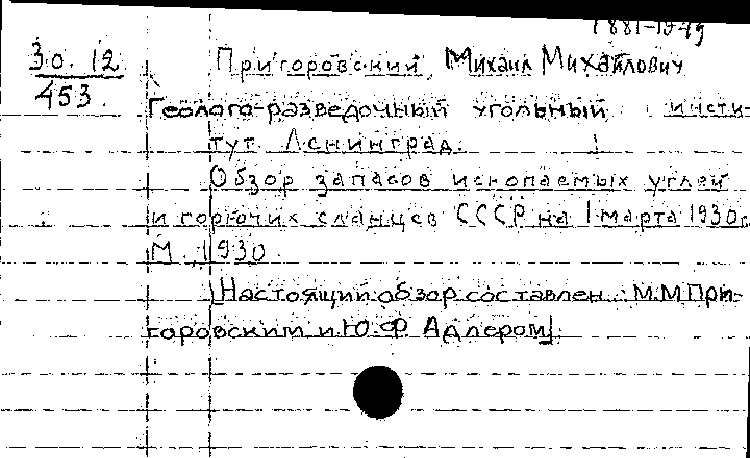 1881-1949
30.12 Пригоровский, Михаил Михайлович
453.
Геолого-разведочный угольный инсти-
тут Ленинград.
Обзор запасов ископаемых углей
и горючих сланцев СССР на 1 марта 1930г.
М., 1930
[Настоящий обзор составлен М.М При-
горовским и Ю.Ф. Адлером]